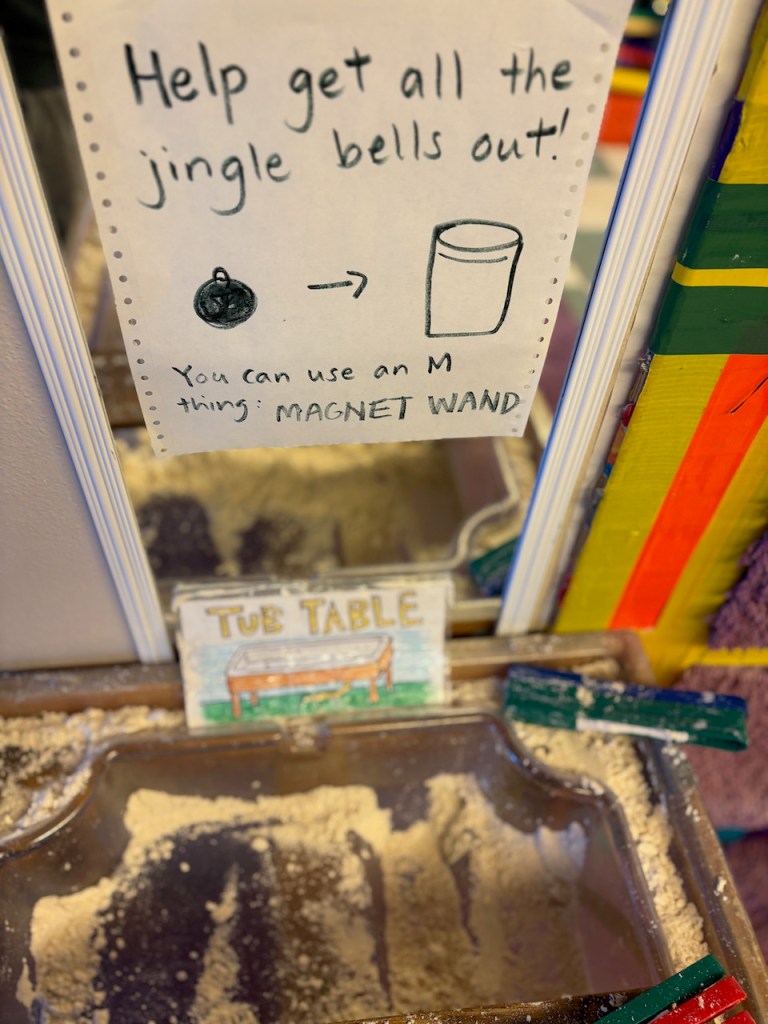 Help get all the
jingle bells out!
You can use an M
thing: MAGNET WAND
TUB TABLE